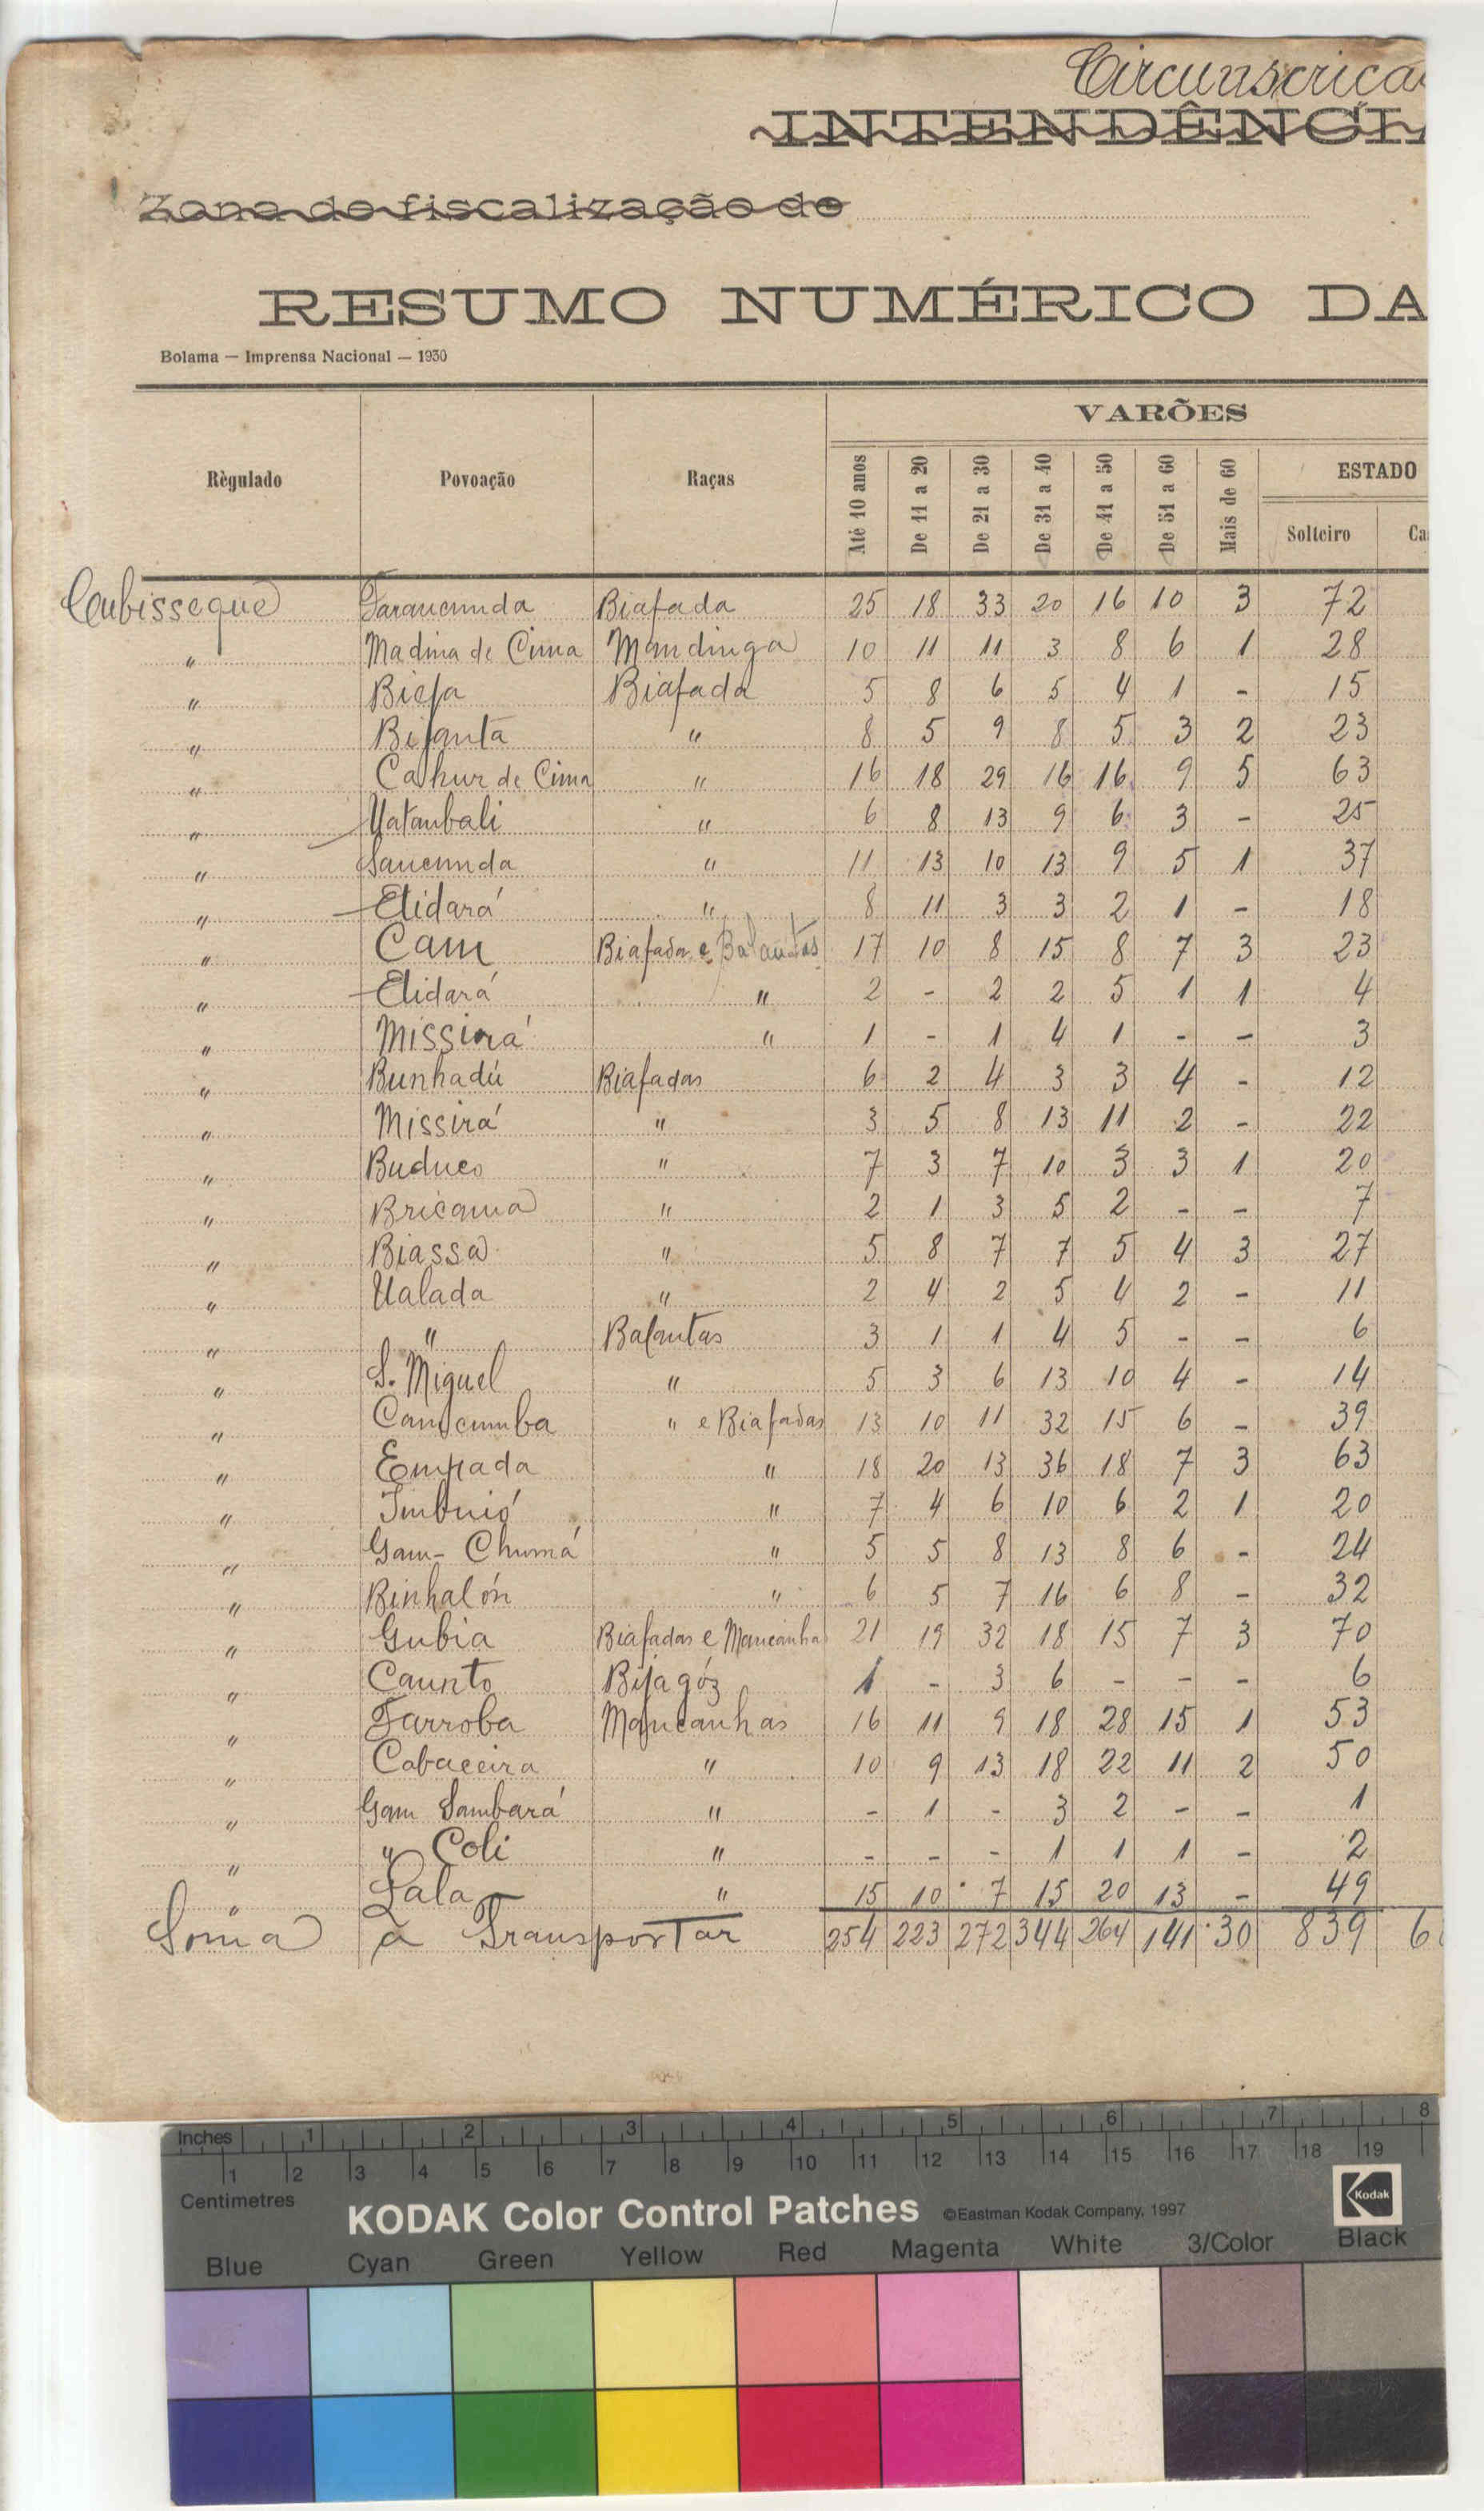 Circunscrica
INTENDÊNCI
Zona de fiscalização de
RESUMO NUMÉRICO DA
Bolama — Imprensa Nacional — 1930
VARÕES
Règulado Povoação Raças Até 10 anos De 11 a 20 De 21 a 30 De 31 a 40 De 41 a 50 De 51 a 60 Mais de 60 ESTADO
Solteiro Ca
Cubisseque Faraucunda Biafada 25 18 33 20 16 10 3 72
" Madina de Cima Mandinga 10 11 11 3 8 6 1 28
" Biefa Biafada 5 8 6 5 4 1 - 15
" Bijanta " 8 5 9 8 5 3 2 23
" Cahur de Cima " 16 18 29 16 16 9 5 63
" Uatambali " 6 8 13 9 6 3 - 25
" Saucunda " 11 13 10 13 9 5 1 37
" Elidará " 8 11 3 3 2 1 - 18
" Cam Biafada e Balantas 17 10 8 15 8 7 3 23
" Elidará " 2 - 2 2 5 1 1 4
" Missirá " 1 - 1 4 1 - - 3
" Bunhadú Biafadas 6 2 4 3 3 4 - 12
" Missirá " 3 5 8 13 11 2 - 22
" Buduco " 7 3 7 10 3 3 1 20
" Bricama " 2 1 3 5 2 - - 7
" Biassa " 5 8 7 7 5 4 3 27
" Ualada " 2 4 2 5 4 2 - 11
" " Balantas 3 1 1 4 5 - - 6
" S. Miguel " 5 3 6 13 10 4 - 14
" Camcumba " e Biafadas 13 10 11 32 15 6 - 39
" Empada " 18 20 13 36 18 7 3 63
" Imbuió " 7 4 6 10 6 2 1 20
" Gam- Chumá " 5 5 8 13 8 6 - 24
" Binhalón " 6 5 7 16 6 8 - 32
" Gubia Biafadas e Mancanha 21 19 32 18 15 7 3 70
" Caunto Bijagóz 1 - 3 6 - - - 6
" Farroba Mancanhas 16 11 9 18 28 15 1 53
" Cabaceira " 10 9 13 18 22 11 2 50
" Gam Sambará " - 1 - 3 2 - - 1
" " Coli " - - - 1 1 1 - 2
" Lala " 15 10 7 15 20 13 - 49
Soma a Transportar 254 223 272 344 264 141 30 839 6
Inches 1 2 3 4 5 6 7 8
1 2 3 4 5 6 7 8 9 10 11 12 13 14 15 16 17 18 19
Centimetres
KODAK Color Control Patches ©Eastman Kodak Company, 1997 Kodak
Blue Cyan Green Yellow Red Magenta White 3/Color Black